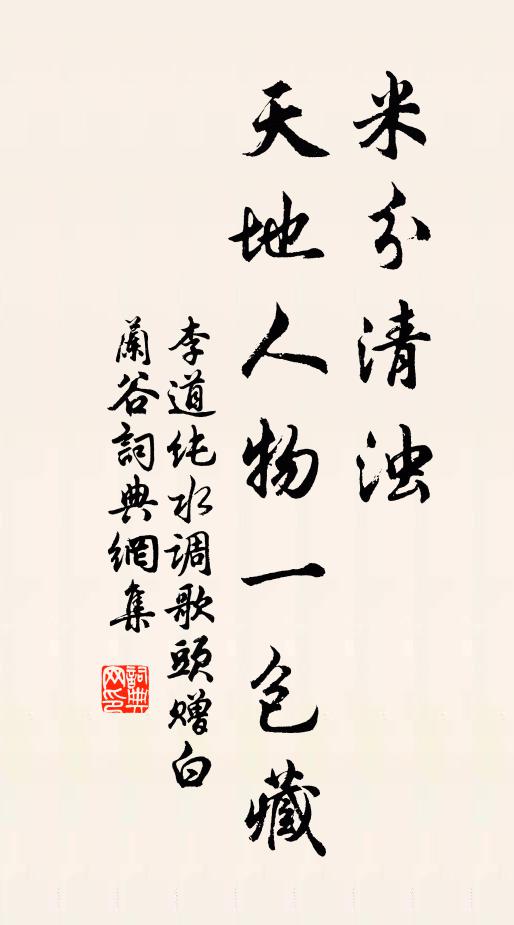 米分清浊
天地人物一包藏
李道纯水调歌頭赠白
蘭谷詞典網集
詞典网印